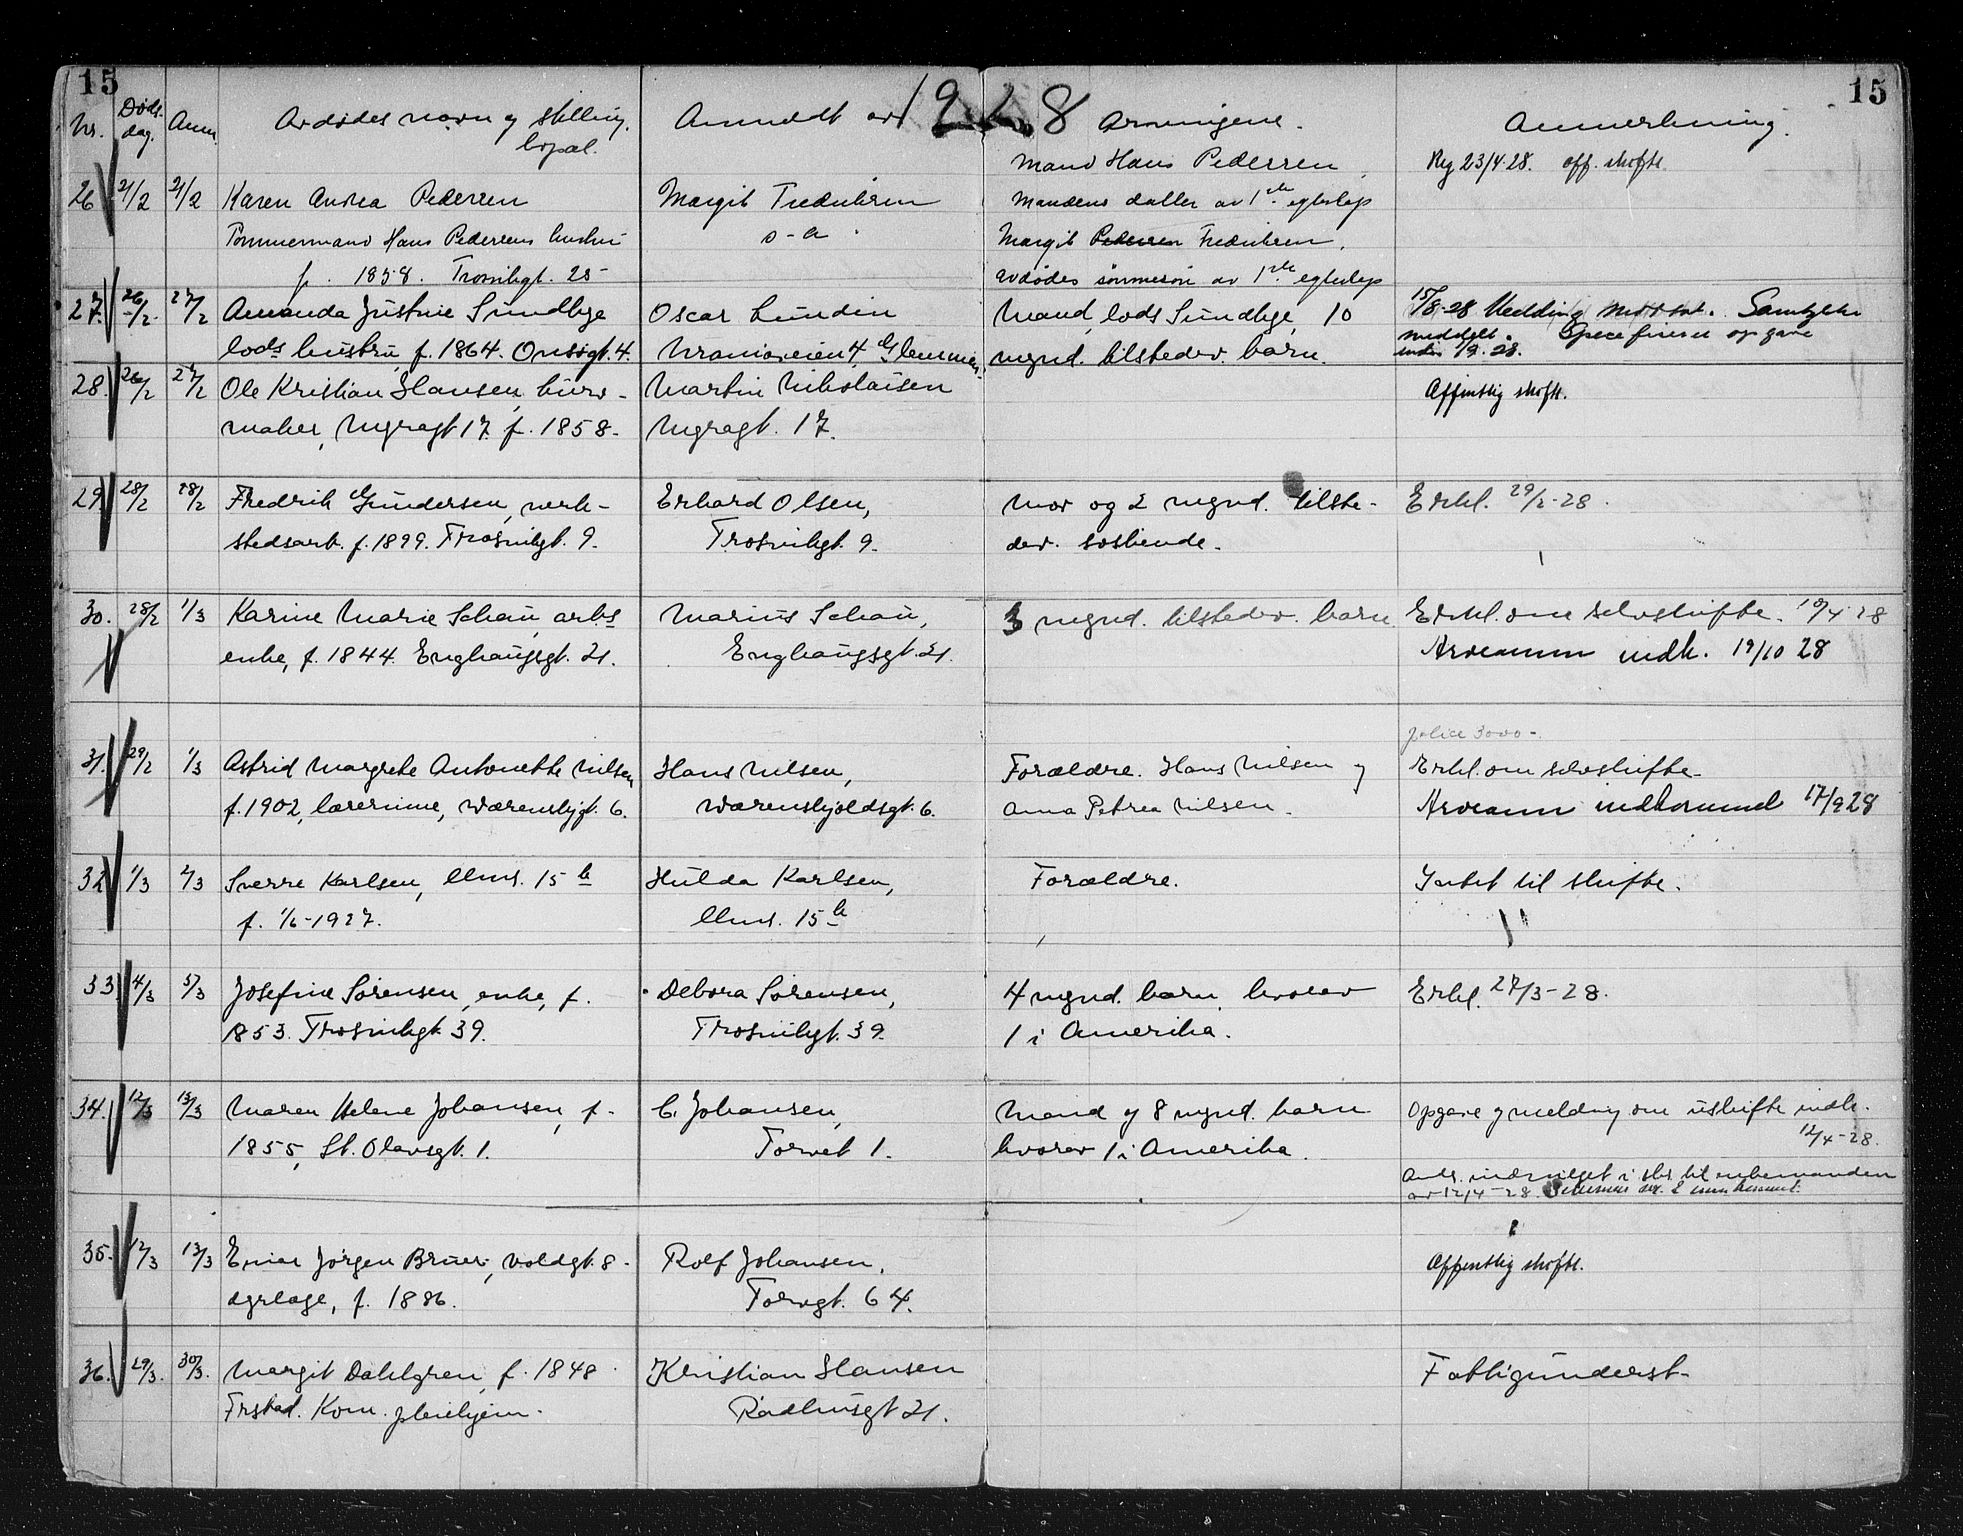 15
1928
15
Nr. Døds- dag. Anm. Avdødes navn og stilling, bopæl. Anmeldt av Arvingene. Anmerkning.
Mand Hans Pedersen Reg 23/4 28. off. skifte
26 21/2 21/2 Karen Andrea Pedersen Margit Fredriksen Mandens datter av 1ste egteskap
Tømmermand Hans Pedersens hustru s-a Margit Pedersen Fredriksen.
f. 1858. Trosvikgt. 25 avdødes sønnesøn av 1ste egteskap
27. 26/2 27/2 Amanda Justine Sundbye Oscar Lundin Mand, lods Sundbye, 10 15/8-28 Samtykke
lods hustru, f. 1864. Onsøgt. 4. Uraniaveien 4, Glemmen mynd. tilstedev. barn. meddelt. opgave
inden 1/9. 28.
28. 26/2 27/2 Ole Kristian Hansen, Martin Nikolaisen Offentlig skifte.
maker, Nygaagt 17. f. 1858. Nygaagt. 17.
29. 28/2 28/2 Fredrik Gundersen, verk- Erhard Olsen, Mor og 2 mynd. tilste- Erkl. 29/2-28.
stedsarb. f. 1899. Trosvikgt. 9. Trosvikgt. 9. dev. søskende.
30. 28/2 1/3 Karine Marie Schau, arbs Marius Schau, 3 mynd. tilstedev. barn Erkl. om selvskifte. 10/4 28
enke, f. 1844. Enghaugsgt. 21. Enghaugsgt. 21. Arveanm indk. 19/10 28
police 3000-
31. 29/2 1/3 Astrid Margrete Antonette Nilsen Hans Nilsen, Forældre. Hans Nilsen og Erkl. om selvskifte-
f. 1902, lærerinne, Wærenskjgt. 6. Wærenskjoldsgt. 6. Anna Petrea Nilsen. Arveanm indkommet 17/9 28
32 1/3 2/3 Sverre Karlsen, 15 b Hulda Karlsen, Forældre. Intet til skifte.
f. 1/6-1927. 15 b
33 4/3 5/3 Josefine Sørensen, enke, f. Debora Sørensen, 4 mynd. barn, hvorav Erkl. 27/3-28.
1853. Trosvikgt. 39. Trosvikgt. 39. 1 i Amerika.
34. 12/3 13/3 Maren Helene Johansen, f. C. Johansen, Mand og 8 mynd. barn Opgave og melding om uskifte indk.
1855, St. Olavsgt. 1. Torvet 1. hvorav 1 i Amerika. 12/4-28.
til enkemanden
av 12/4-28.
35. 12/3 13/3 Einar Jørgen Bruer, Voldgt. 8. Rolf Johansen, Offentlig skifte.
dyrlæge, f. 1886. Torvgt. 64.
36. 29/3. 30/3. Margit Dahlgren, f. 1848 Kristian Hansen Fattigunderst.
Frstad. Kom. pleiehjem. Raadhusgt 21.